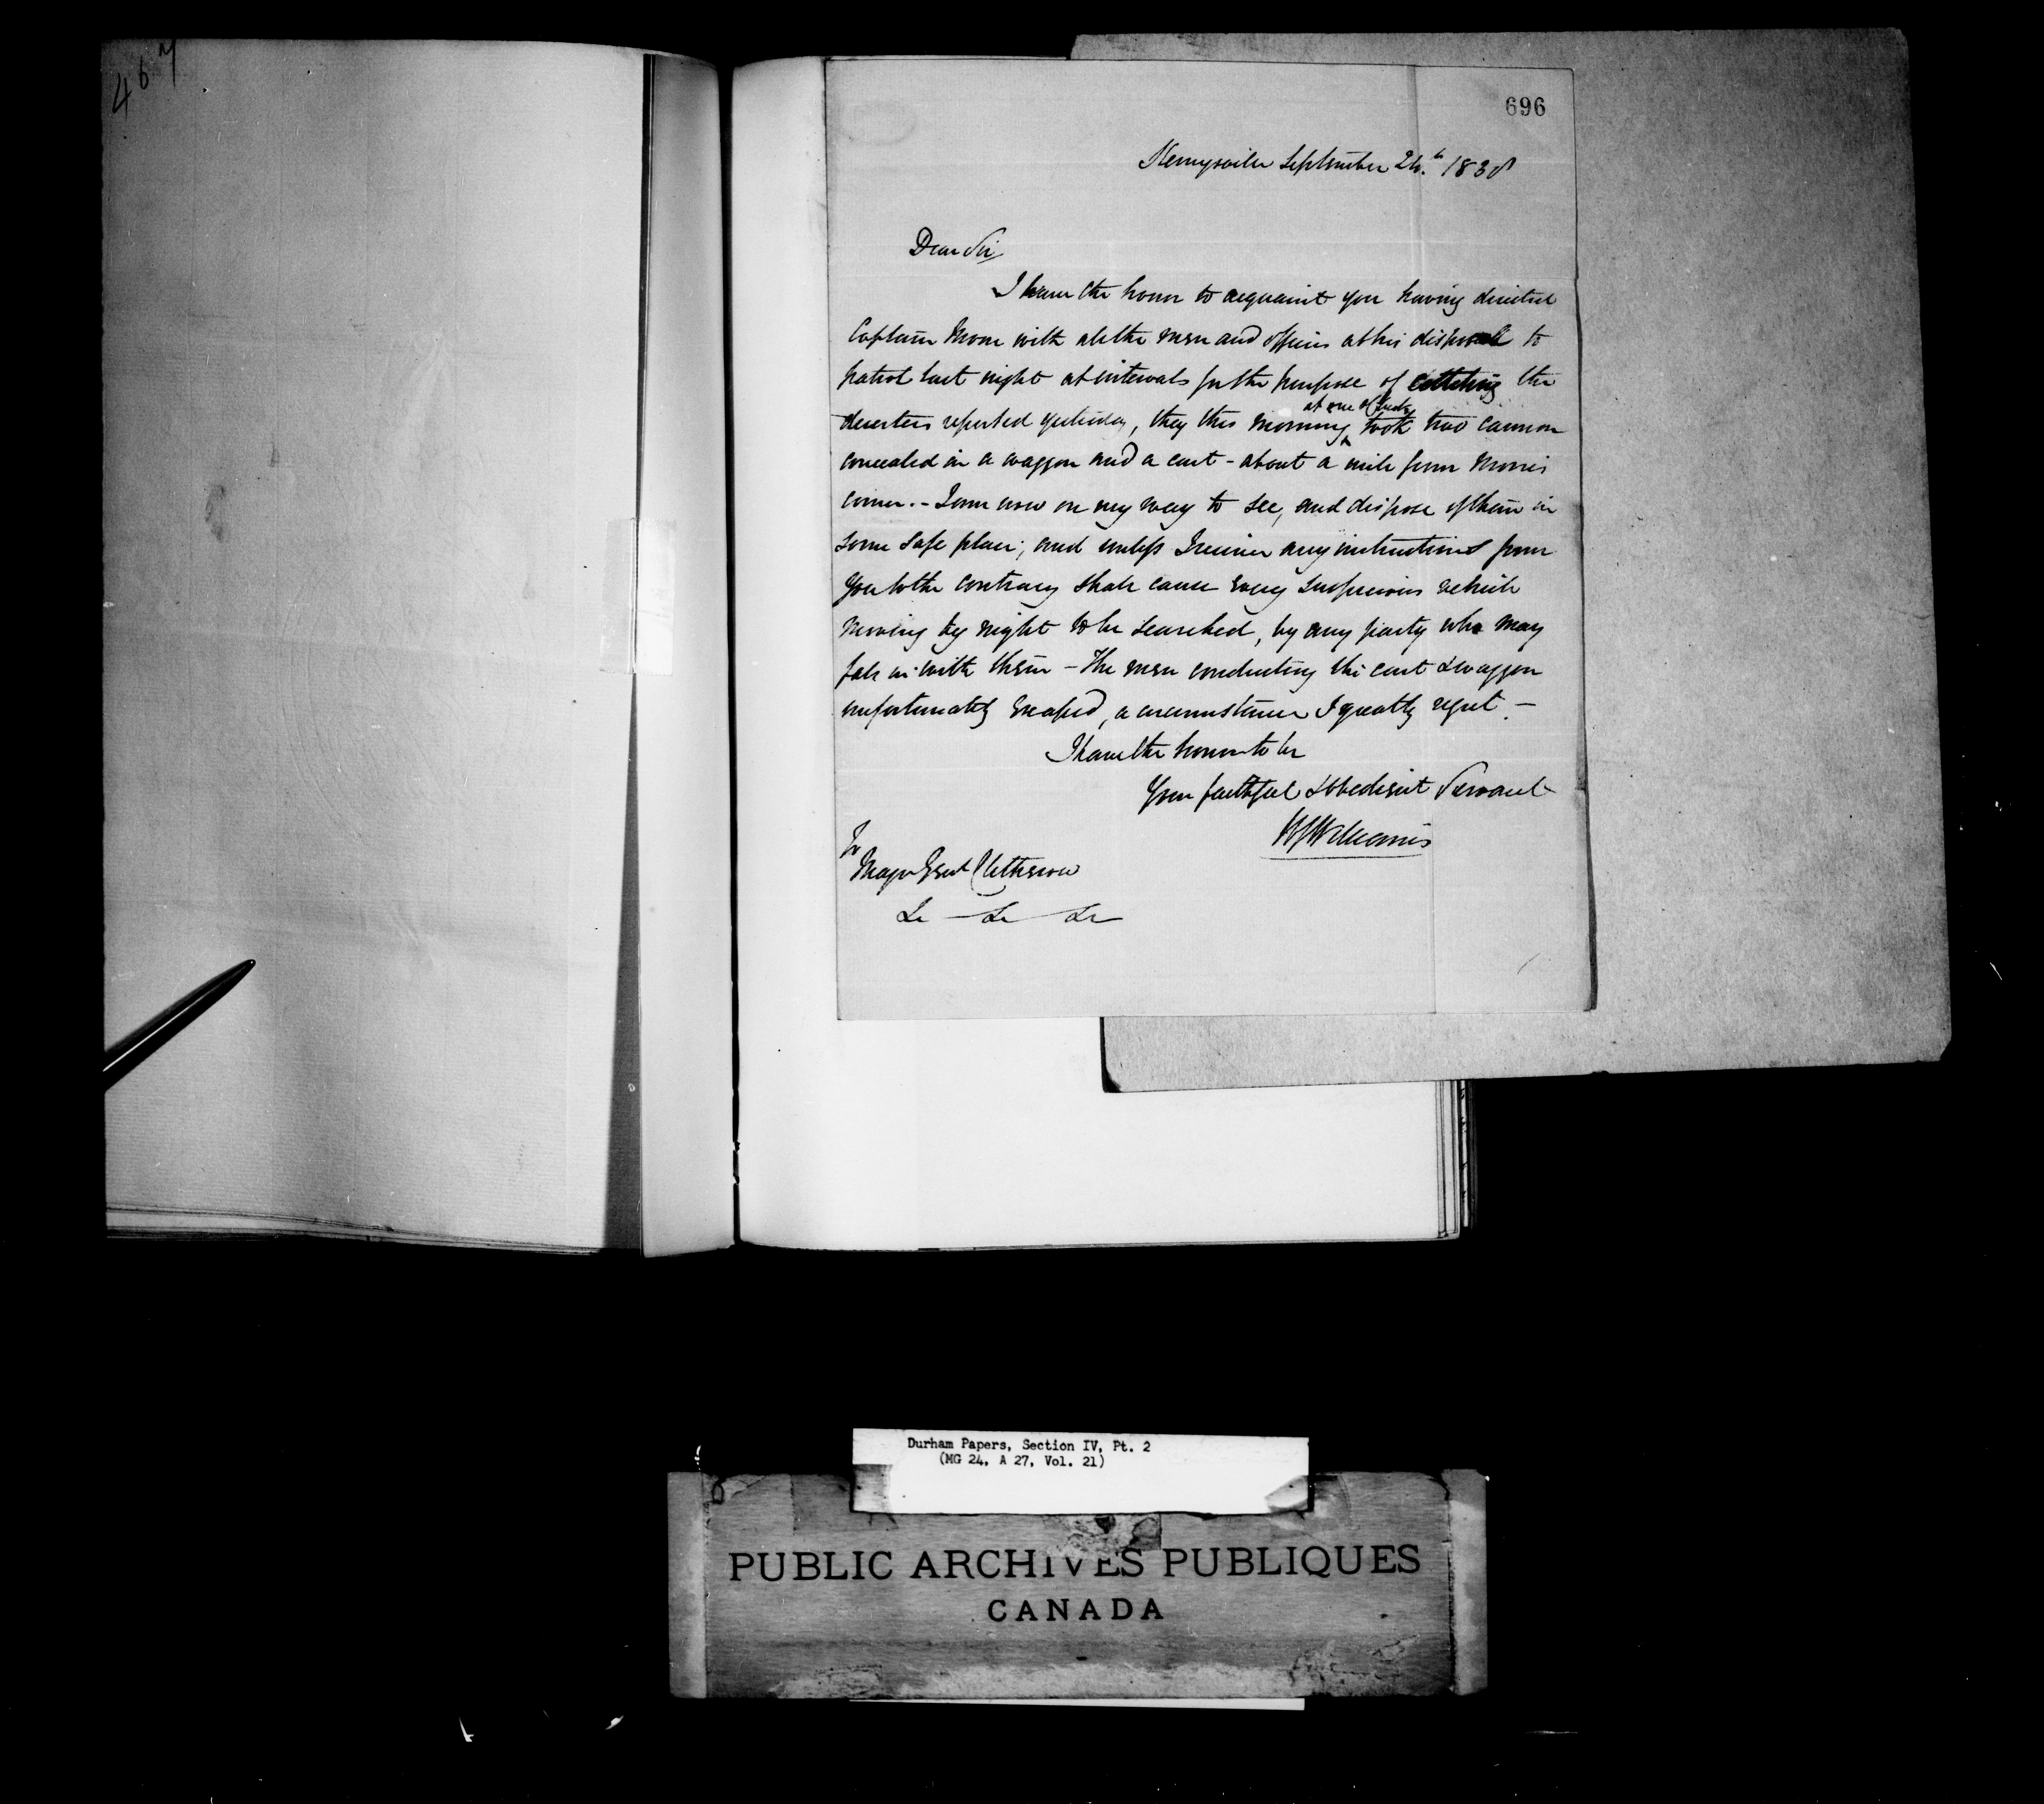 467
696
Henryville September 24.th 1838
Dear Sir
I have the honor to acquaint you having directed
Captain Moore with all the men and officers at his disposal to
patrol last night at intervals for the purpose of catching the
deserters reported yesterday, they this morning took two cannon
at one o'Clock
concealed in a waggon and a cart - about a mile from Morris
corner. - I am now on my way to see, and dispose of them in
some safe place; and unless I receive any instructions from
you to the contrary shall cause every suspicious vehicle
moving by night to be searched, by any party who may
fall in with them - The men conducting the cart & waggon
unfortunately escaped, a circumstance I greatly regret. -
I have the honor to be
Your faithful & obedient Servant
Williams
To
Major Genl Clitherow
&c - &c - &c
Durham Papers, Section IV, Pt. 2
(MG 24, A 27, Vol. 21)
PUBLIC ARCHIVES PUBLIQUES
CANADA